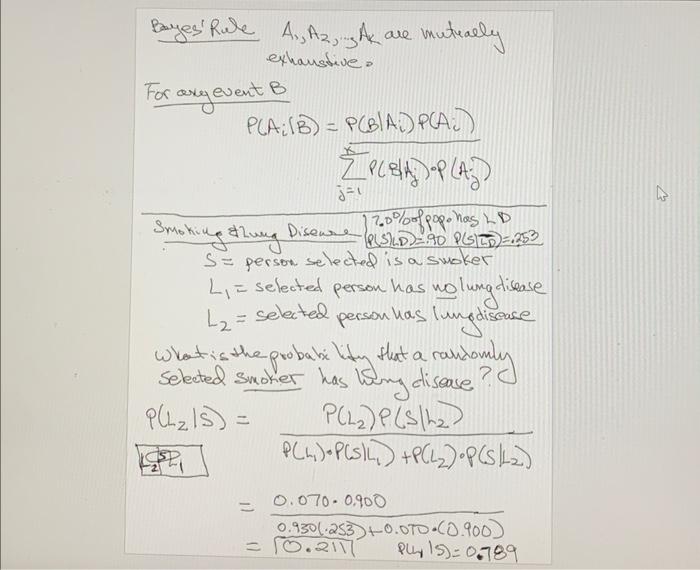 Bayes' Rule A₁, A₂, ..., Aₖ are mutually
exhaustive.
For any event B
P(Aᵢ|B) = P(B|Aᵢ) P(Aᵢ)
k
Σ P(B|Aⱼ)·P(Aⱼ)
j=1
Smoking & Lung Disease 7.0% of pop. has LD
P(S|LD)=.90 P(S|L̅D̅)=.253
S = person selected is a smoker
L₁ = selected person has no lung disease
L₂ = selected person has lung disease
What is the probability that a randomly
selected smoker has lung disease?
P(L₂|S) = P(L₂) P(S|L₂)
P(L₁)·P(S|L₁) + P(L₂)·P(S|L₂)
L₂ S L₁
= 0.070 · 0.900
0.930(.253) + 0.070·(0.900)
= 0.211 P(L₁|S) = 0.789